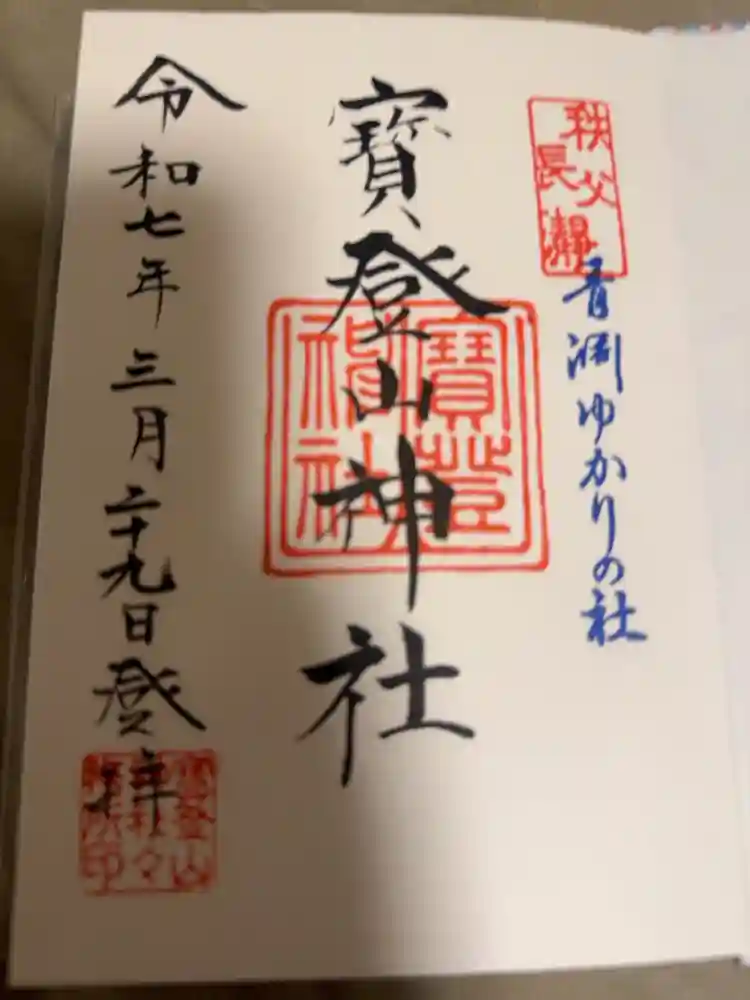 秩父
長瀞
青淵ゆかりの社
寶登山神社
寶登
山神社
令和七年三月二十九日登拝